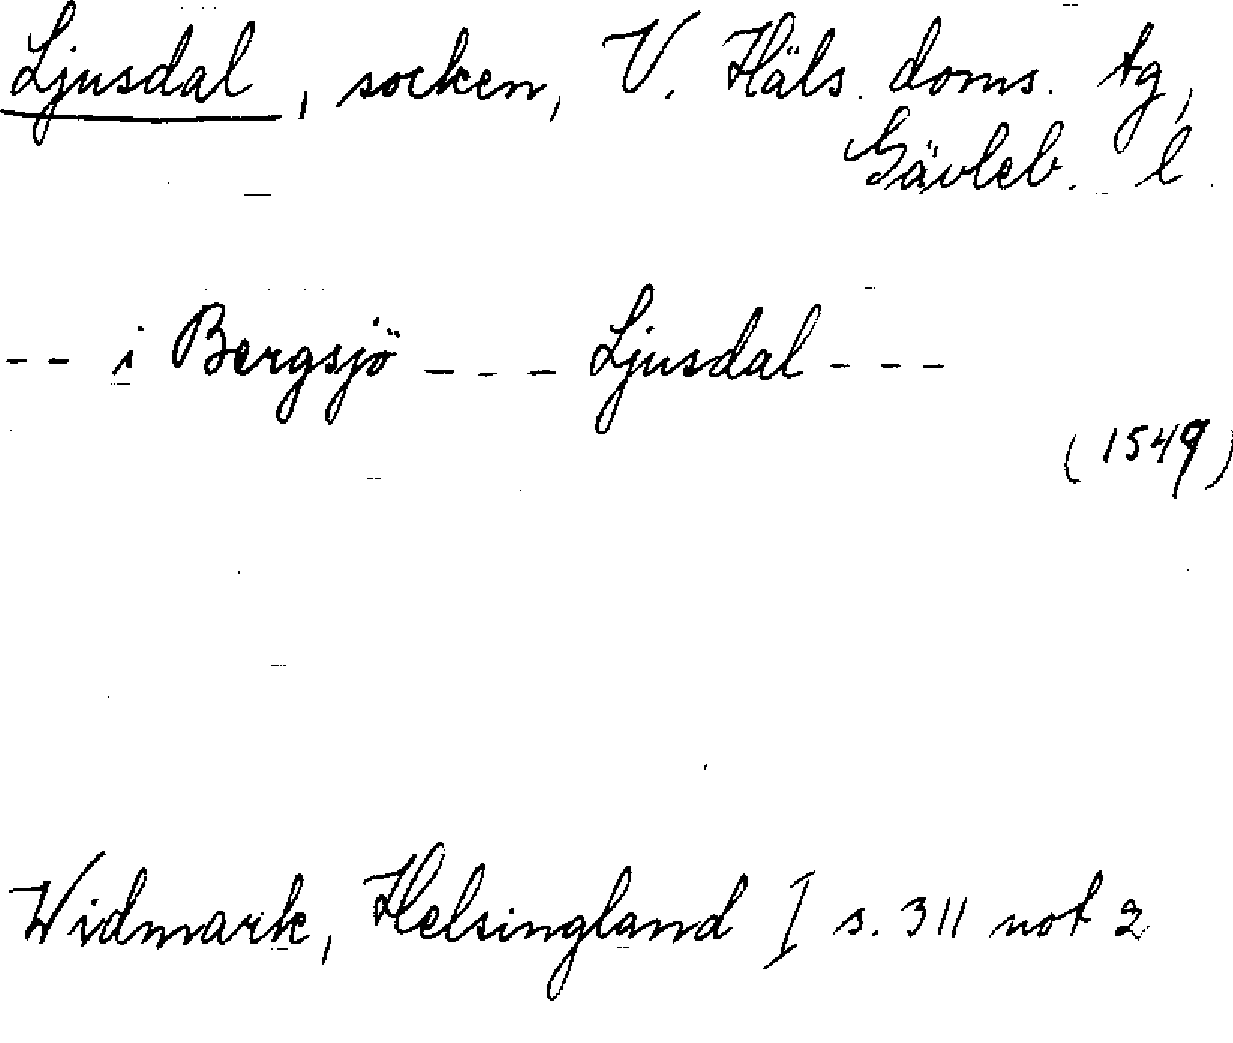 Ljusdal, socken, V. Häls. doms. tg,
Gävleb. l.
-- i Bergsjö --- Ljusdal ---
(1549)
Widmark, Helsingland I s. 311 not 2